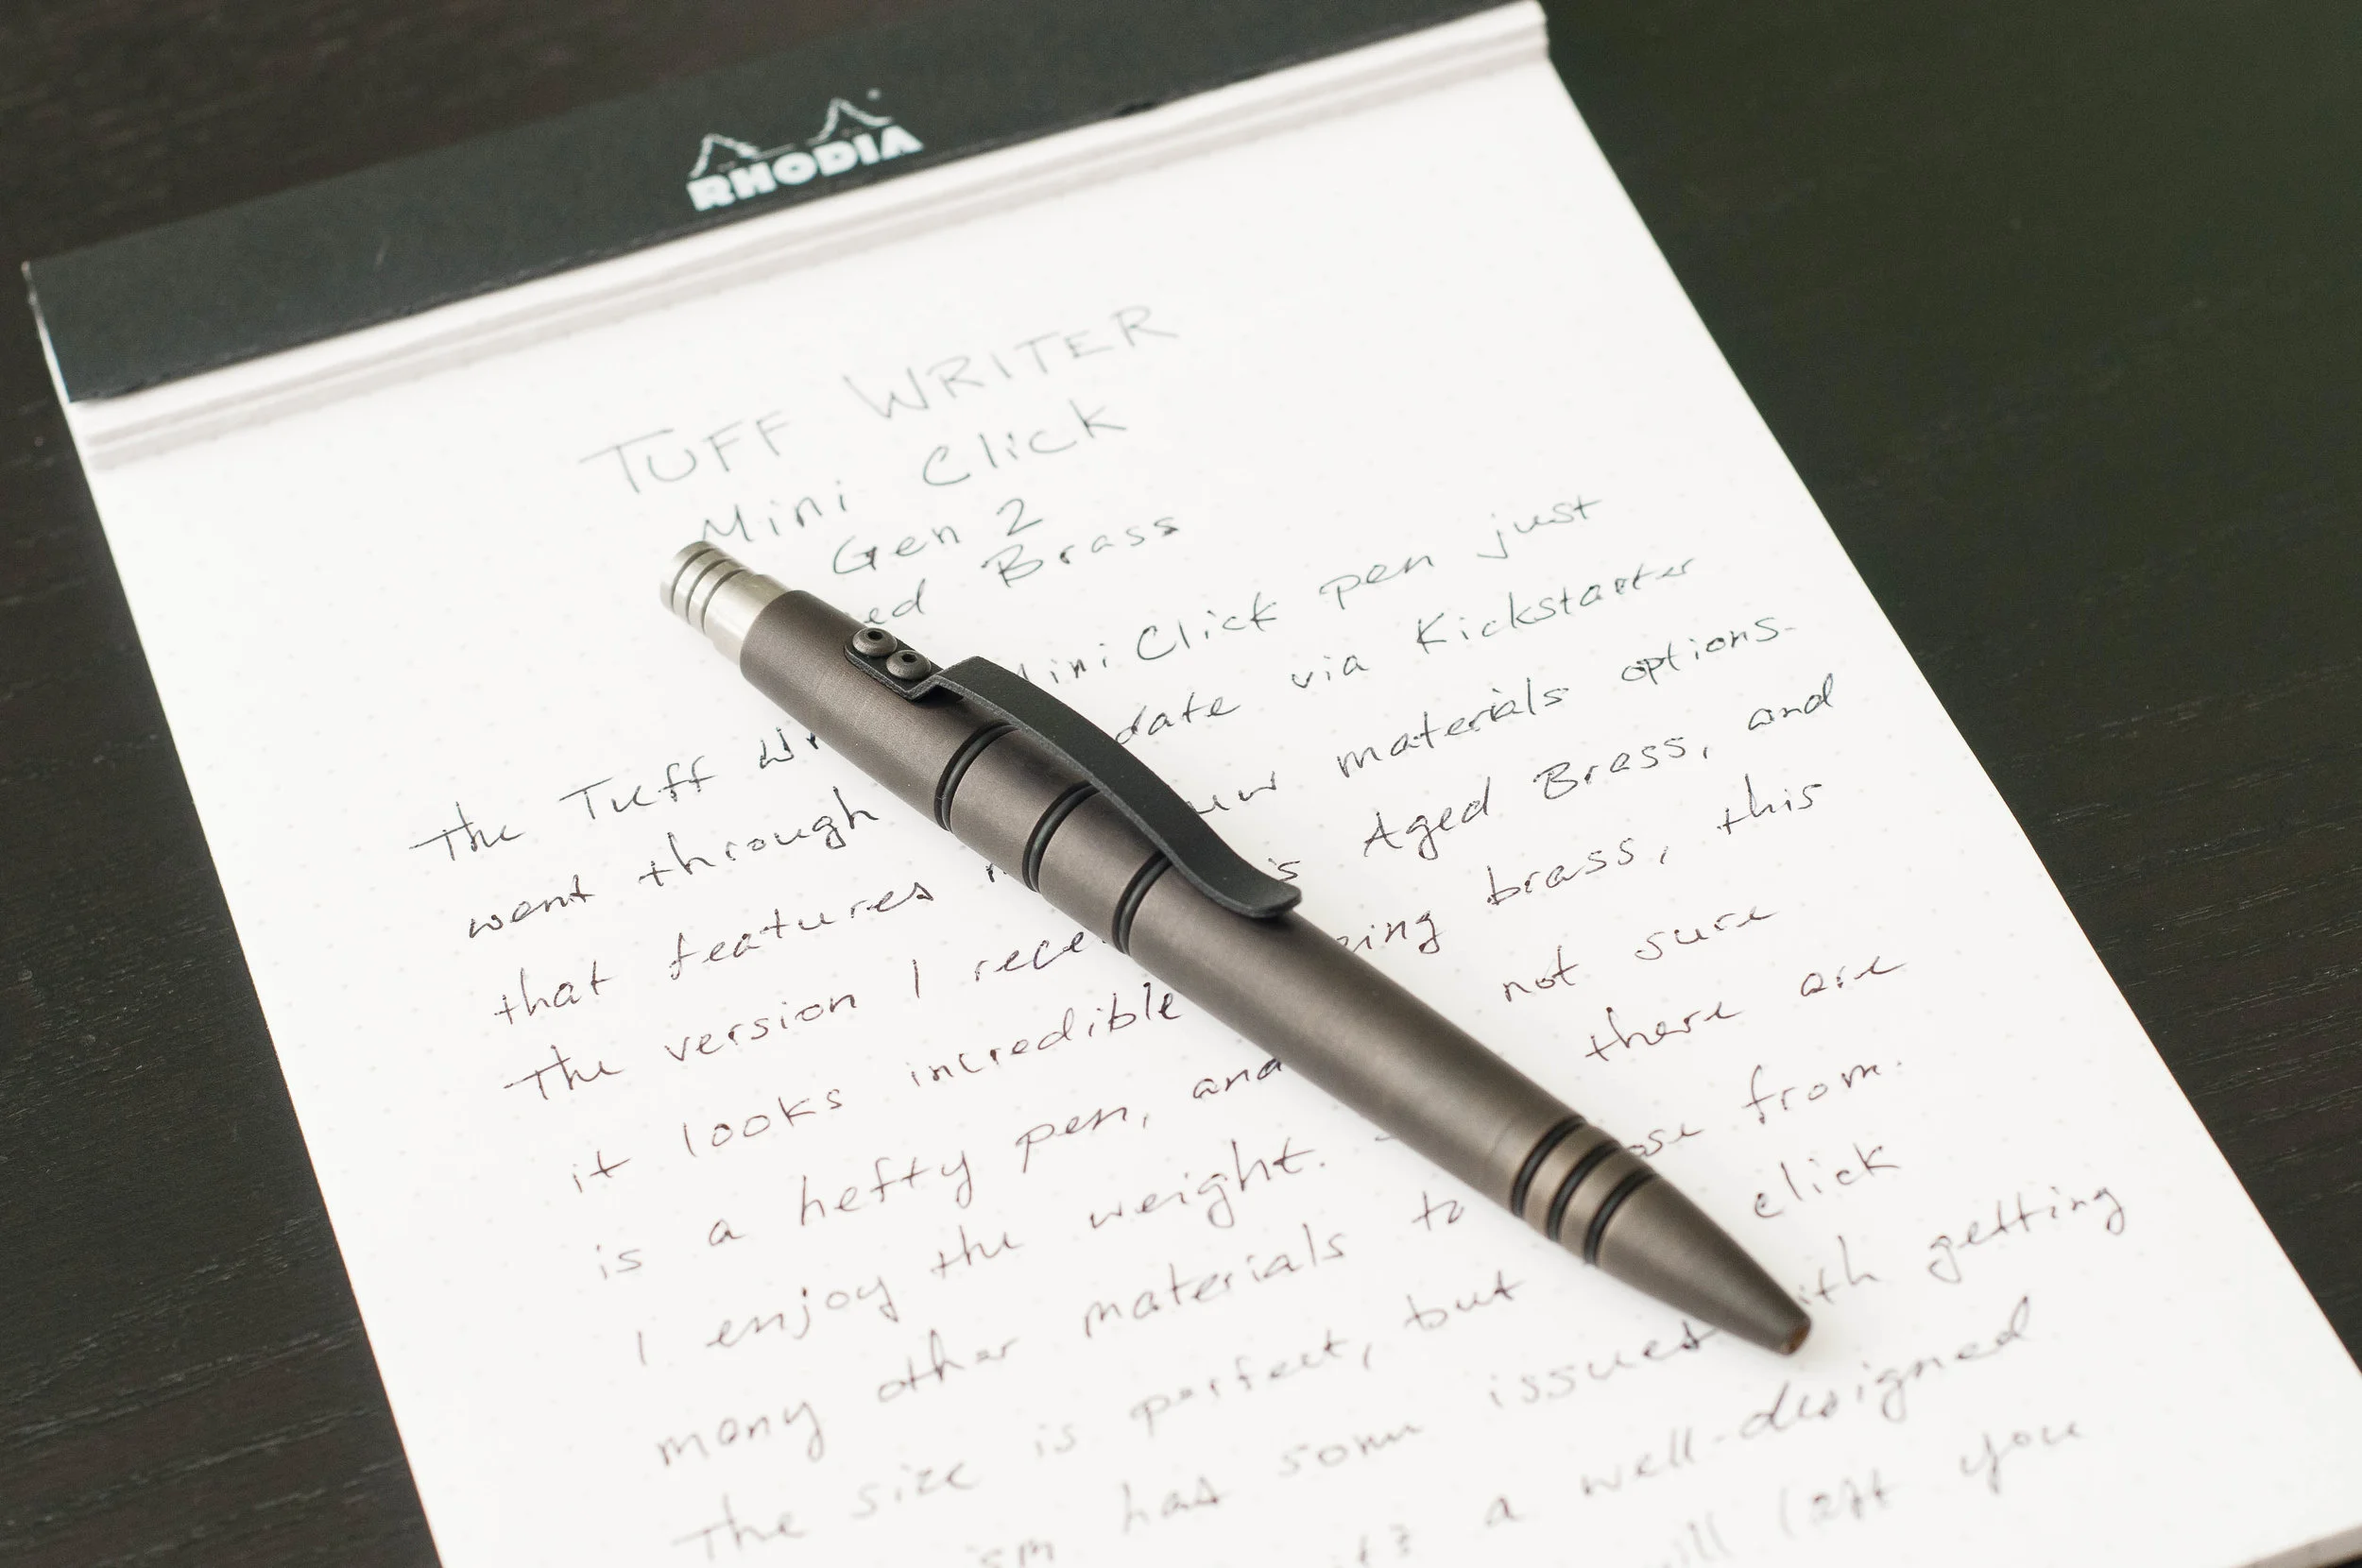 RHODIA
TUFF WRITER
Mini Click
Gen 2
Brass
The Tuff Mini Click pen just
went through date via Kickstarter
that features materials options.
The version I Aged Brass, and
it looks incredible brass, this
is a hefty pen, and not sure
I enjoy the weight. there are
many other materials to from.
The size is perfect, but click
has some issues with getting
a well-designed
you